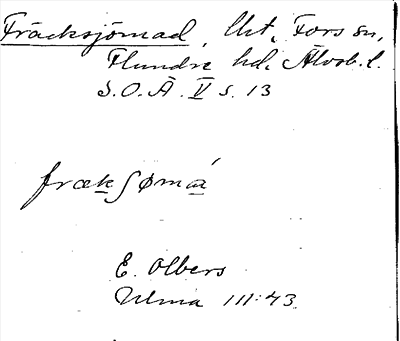 Fräcksjömad, Ukt, Fors sn,
Flundre hd. Älvsb. l.
S.O.Ä. V s. 13
frækʃøma
E. Olbers
Ulma 111:43.